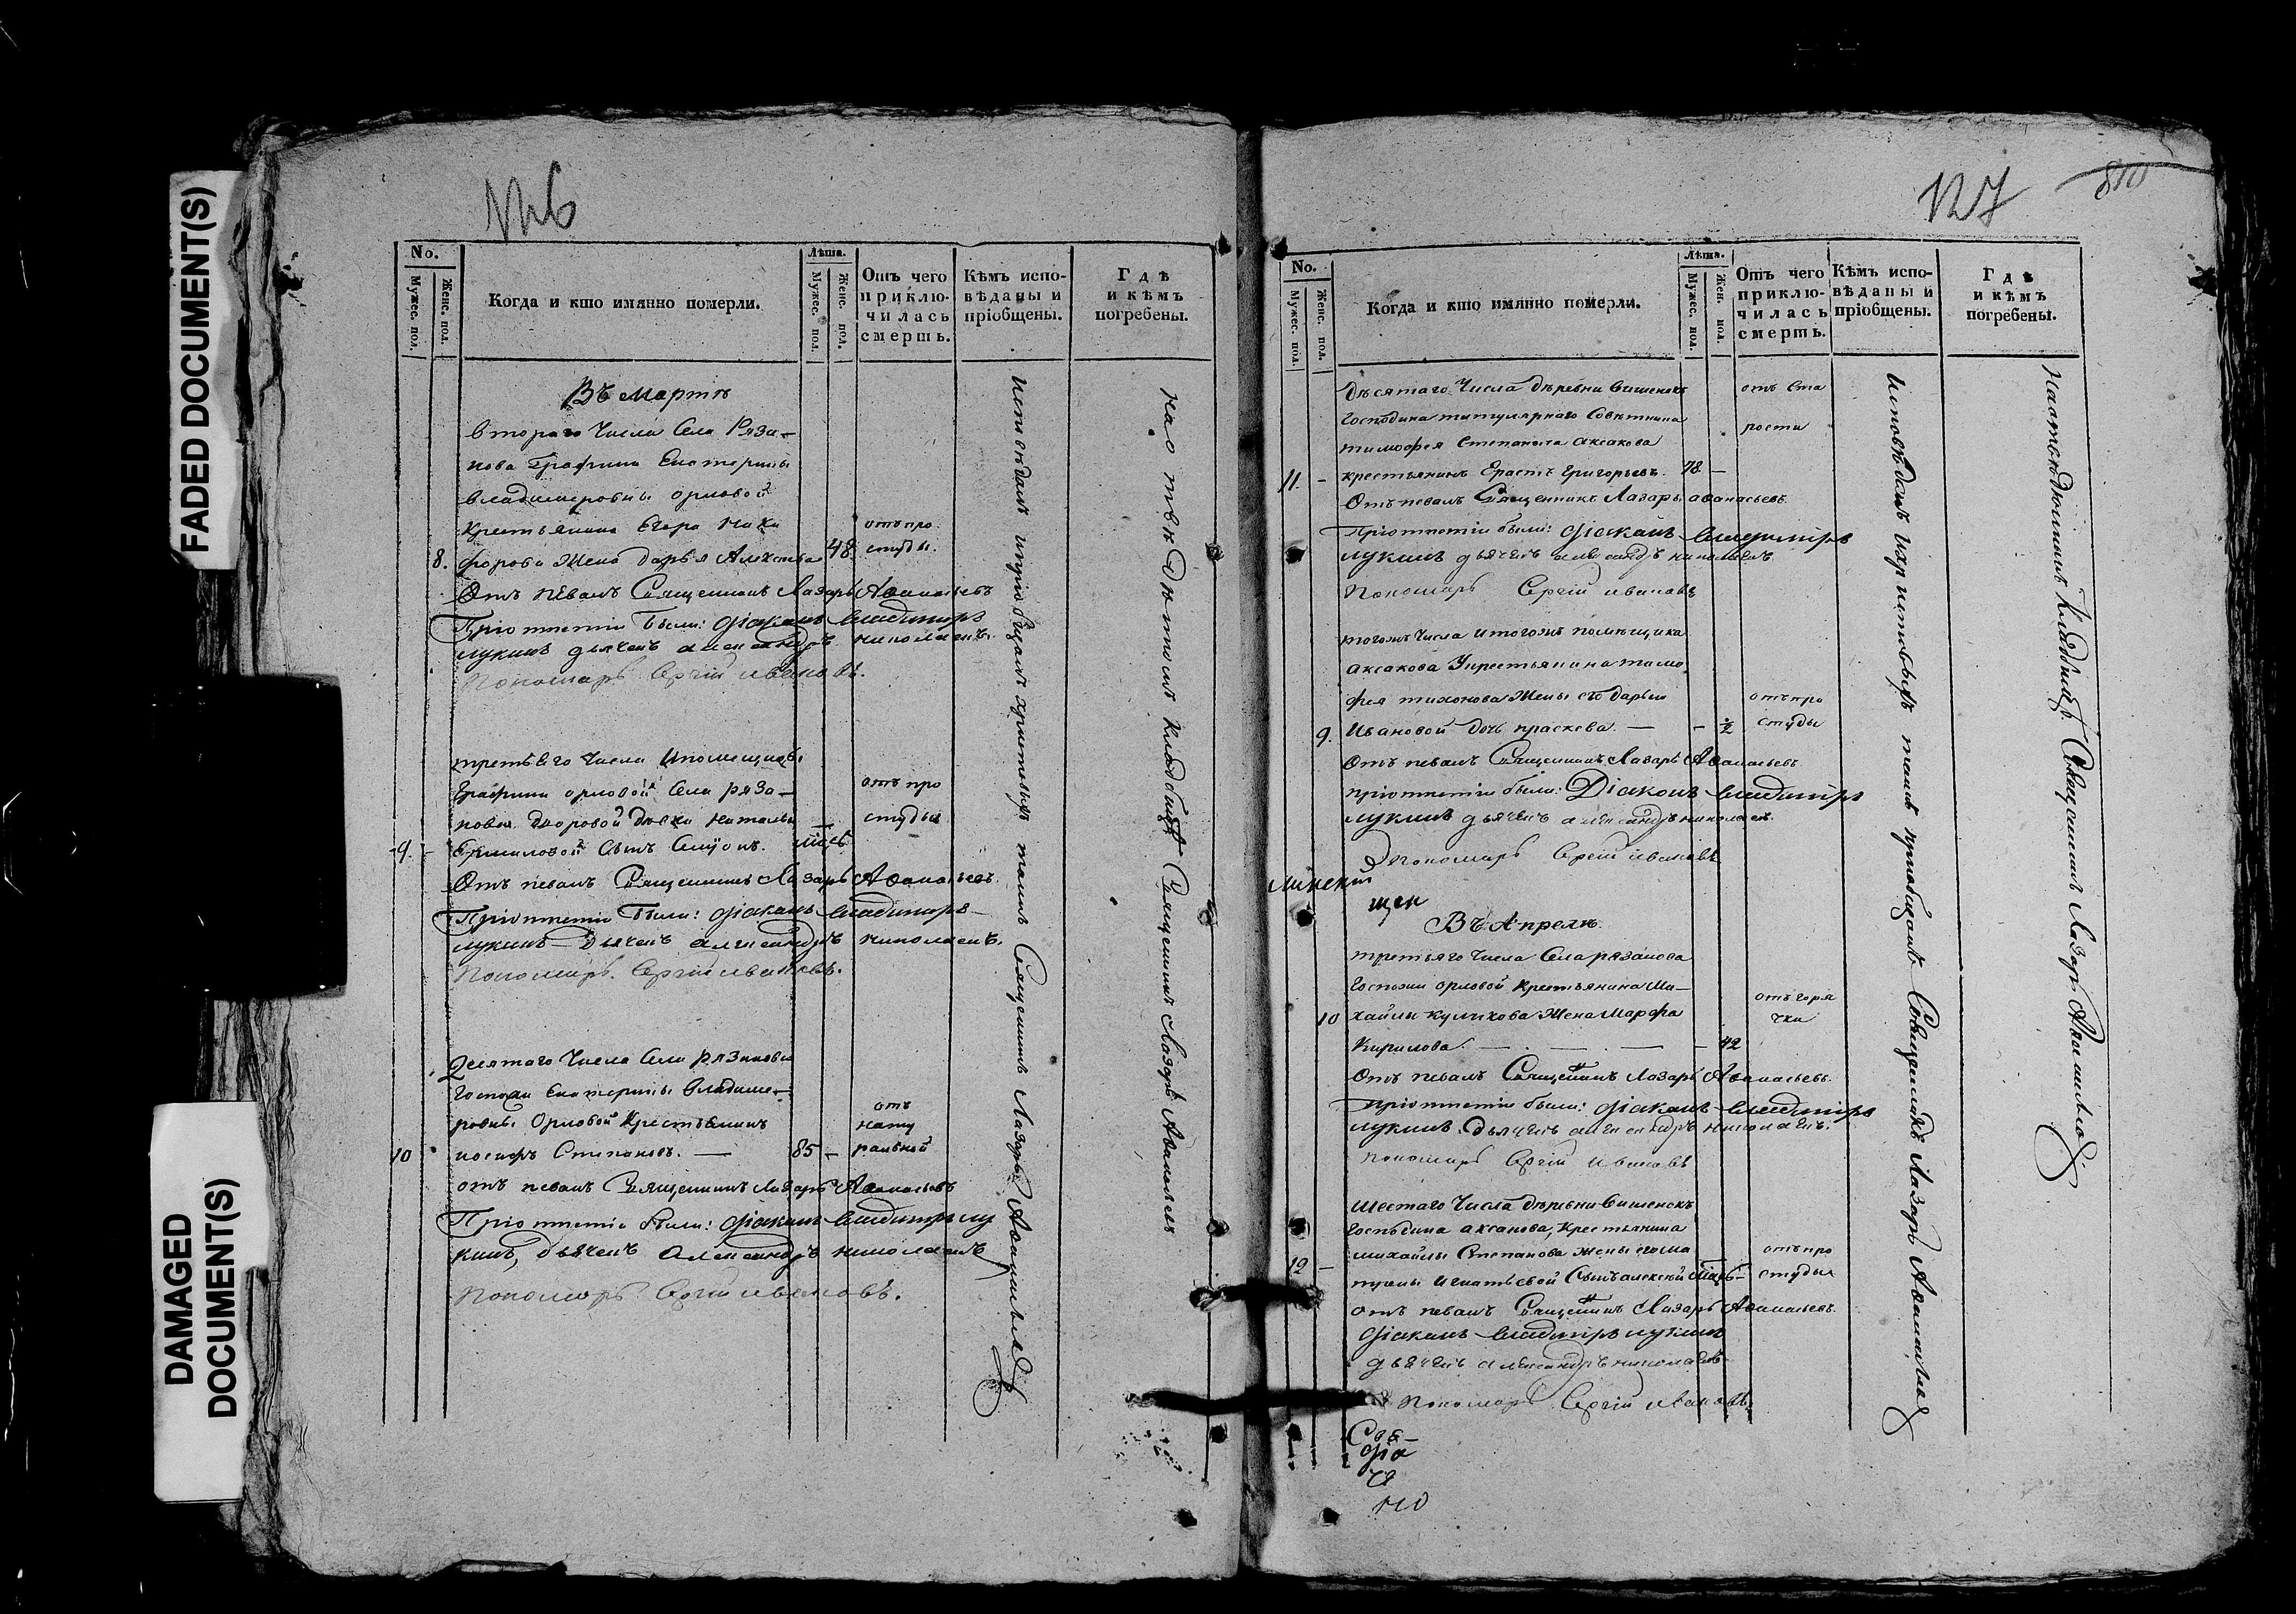 FADED DOCUMENT(S)
DAMAGED
DOCUMENT(S)
No.
Мужес. пол.
Женс. пол.
Когда и кто имянно померли.
Лѣта.
Мужес. пол.
Женс. пол.
Отъ чего
приклю-
чилась
смерть.
Кѣмъ испо-
вѣданы и
пріобщены.
Гдѣ
и кѣмъ
погребены.
Въ Мартѣ
втораго Числа Села Ряза-
нова Графини Екатерины
Владимеровны орловой
крестьянина Егора Ники
8. форова Жена дарья Алексѣва 48 отъ про
студы.
Отъ певалъ Священникъ Лазарь Аѳанасьевъ
При отпетіи Были: Діаконъ Владимиръ
лукинъ дьячекъ александръ николаевъ.
Пономарь Сергій ивановъ.
третьяго Числа Упомещицы
Графини орловой Села ряза- отъ про
нова дворовой Девки наталье студы
9. - Ермиловой Сынъ Симіонъ.
Отъ певалъ Священникъ Лазарь Аѳанасьевъ
При отпетіи Были: Діаконъ Владимиръ
лукинъ Дьячекъ александръ николаевъ.
Пономарь Сергій ивановъ.
Десятаго Числа Села рязанова
Госпожи екатерины Владиме-
ровны Орловой Крестьянинъ
10 иосифъ Степановъ. — 85 -
отъ
нату
ральной
отъ певалъ Священникъ Лазарь Аѳанасьевъ
При отпетіи были: Діаконъ Владимиръ лу
кинъ, Дьячекъ Александръ николаевъ
Пономарь Сергій ивановъ.
Исповѣдалъ и пріобщалъ христовыхъ таинъ Священникъ Лазарь Аѳанасьевъ
на отведенномъ кладбище Священникъ Лазарь Аѳанасьевъ
127
810
No.
Мужес. пол.
Женс. пол.
Когда и кто имянно померли.
Лѣта.
Мужес. пол.
Жен. пол.
Отъ чего
приклю-
чилась
смерть.
Кѣмъ испо-
вѣданы и
пріобщены.
Гдѣ
и кѣмъ
погребены.
Десятаго Числа деревни вишенокъ отъ ста
Господина титулярнаго Советника рости
тимофея Степаныча аксакова
11. - крестьянинъ Ерастъ Григорьевъ. 78 -
Отъ певалъ Священникъ Лазарь аѳанасьевъ
При отпетіи были: Діаконъ Владимиръ
лукинъ дьячекъ александръ николаевъ
Пономарь Сергій ивановъ
тогожъ Числа и тогожъ помѣщика
аксакова Укрестьянина тимо
фея тихонова Жены его дарьи отъ про
9. Ивановой дочь праскева. — - ½ студы
Отъ певалъ Священникъ Лазарь Аѳанасьевъ
при отпетіи были: Діаконъ Владимиръ
лукинъ дьячекъ александръ николаевъ
Пономарь Сергій ивановъ
щен
Въ Апрелѣ.
третьяго Числа Села рязанова
Госпожи орловой крестьянина Ми-
10 хайлы куликова Жена Марфа отъ горя
чки
Кирилова. — — — 42
Отъ певалъ Священникъ Лазарь Аѳанасьевъ.
при отпетіи были: Діаконъ Владимиръ
лукинъ. Дьячекъ александръ николаевъ.
Пономарь Сергій Ивановъ
Шестаго Числа деревни вишенокъ
Господина аксакова, крестьянина
михайлы Степанова жены его ма отъ про
12 - трены игнатьевой Сынъ алексей студы
отъ певалъ Священникъ Лазарь Аѳанасьевъ.
Діаконъ Владимиръ лукинъ
дьячекъ александръ николаевъ
Пономарь Сергій ивановъ.
Діа
Исповѣдалъ и христовыхъ таинъ пріобщалъ Священникъ Лазарь Аѳанасьевъ
на отведенномъ кладбище Священникъ Лазарь Аѳанасьевъ